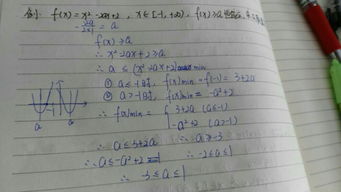 例: f(x)=x²-2ax+2, x∈[-1,+∞), f(x)≥a 恒成立
-2a/2×1 = a
f(x)≥a
∴ x²-2ax+2≥a
∴ a≤(x²-2ax+2)min
① a≤-1时, f(x)min=f(-1)=3+2a
② a>-1时, f(x)min=-a²+2
∴ f(x)min={3+2a (a≤-1)
-a²+2 (a>-1)
∴ a≤3+2a ∴ a≥-3
∴ a≤-a²+2 ∴ -2≤a≤1
∴ -3≤a≤1
a a